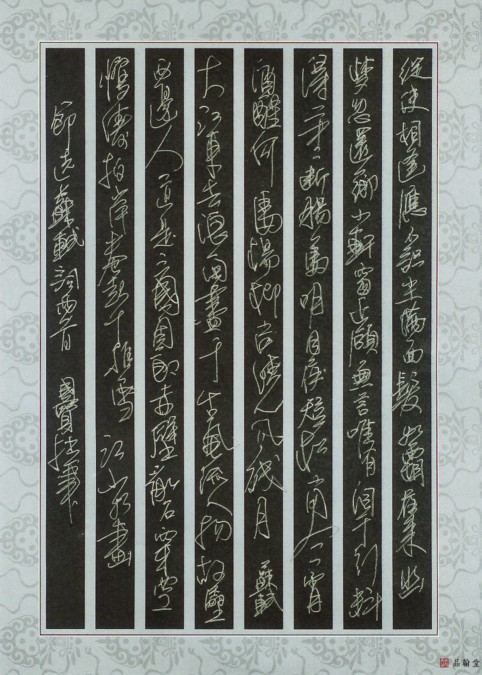 縱使相逢應不識塵滿面鬢如霜夜來幽
夢忽還鄉小軒窗正顧無言唯有淚千行料
得年年斷腸處明月夜短松岡今宵
酒醒何處楊柳岸曉風殘月 蘇軾
大江東去浪淘盡千古風流人物故壘
西邊人道是三國周郎赤壁亂石穿空
驚濤拍岸卷起千堆雪 江山如畫
節選蘇軾詞兩首
品翰堂